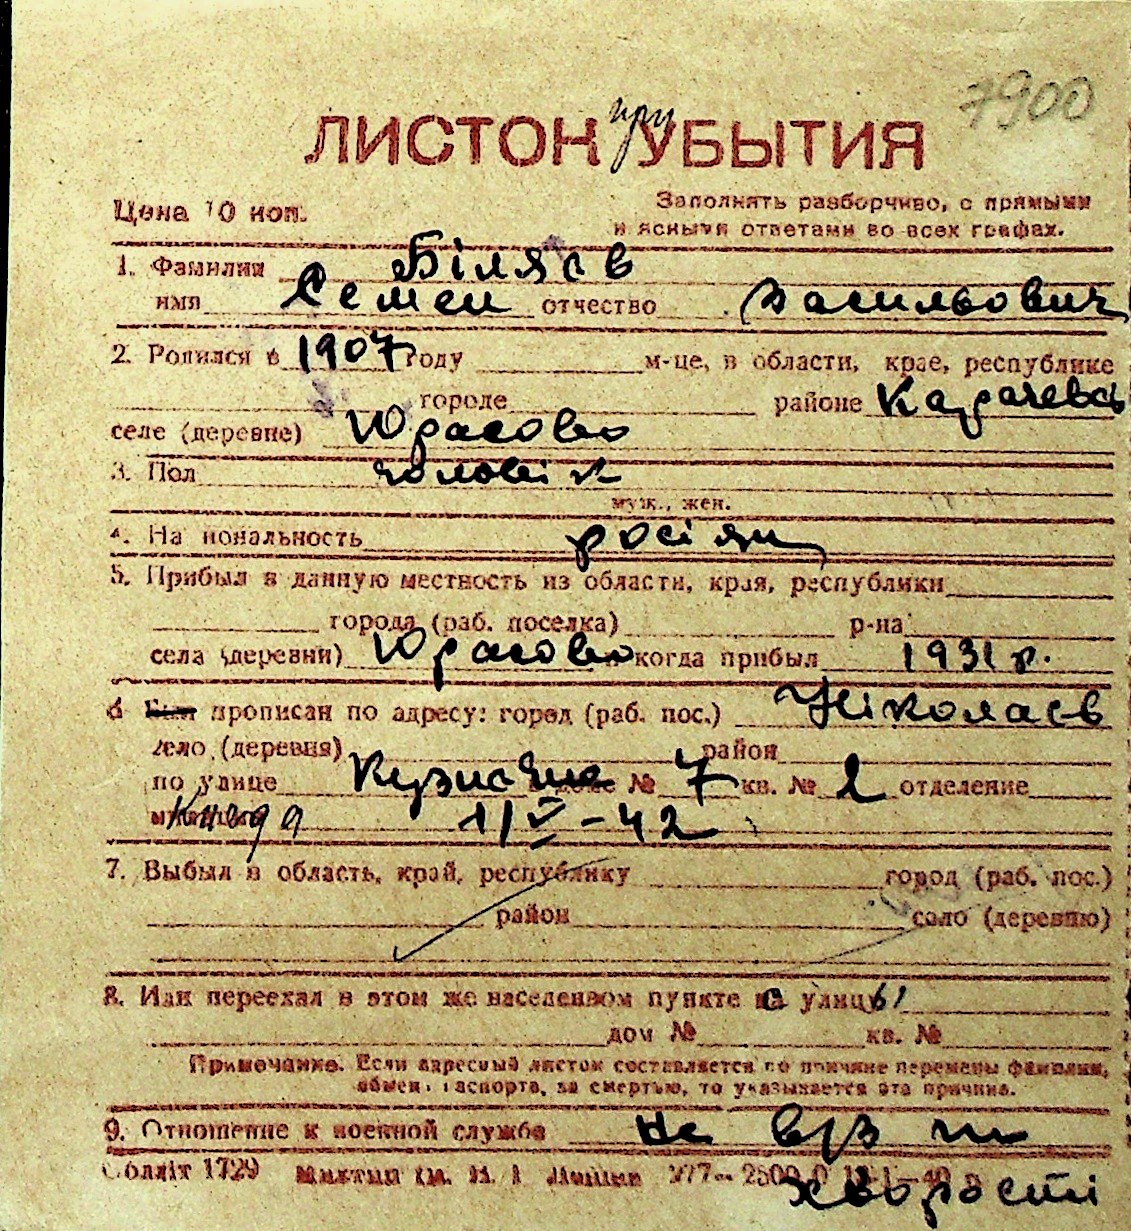 7900
ЛИСТОК при УБЫТИЯ
Цена 10 коп.
Заполнять разборчиво, с прямыми
и ясными ответами во всех графах.
1. Фамилия Біляєв
имя Семен отчество Васильович
2. Родился в 1907 году м-це, в области, крае, республике
городе районе Карачевсь
селе (деревне) Юрасово
3. Пол чоловік
муж., жен.
4. Национальность росіян
5. Прибыл в данную местность из области, края, республики
города (раб. поселка) р-на
села (деревни) Юрасово когда прибыл 1931 р.
6 Был прописан по адресу: город (раб. пос.) Ніколаєв
село (деревня) район
по улице Кузнечна № 7 кв. № 2 отделение
1/V-42
7. Выбыл в область, край, республику город (раб. пос.)
район село (деревню)
8. Или переехал в этом же населенном пункте с улицы
дом № кв. №
Примечание. Если адресный листок составляется по причине перемены фамилии,
обмена паспорта, за смертью, то указывается эта причина.
9. Отношение к военной службе не в/з по
Соллит 1729
хворости